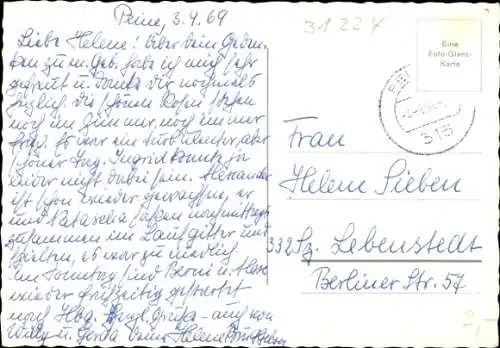 Peine, 3.4.69
Liebe Helene! Über Dein Geden-
ken zu m. Geb. habe ich mich sehr
gefreut u. danke Dir nochmals
herzlich. Die schönen Rosen stehen
noch im Zimmer, noch immer
Es war ein turbulenter, aber
schöner Tag. Ingrid konnte ja
leider nicht dabei sein. Alexander
ist schon wieder gewachsen, er
und Natascha saßen nachmittags
zusammen im Laufgitter und
spielten, es war zu niedlich
Am Sonntag sind Berni u.
wieder frühzeitig gestartet
nach Hbg. Herzl. Grüße - auch von
Willy u. Gerda Deine Helene
31224
Eine
Foto-Glanz-
Karte
315
Frau
Helene Sieben
332 Sz. Lebenstedt
Berliner Str. 57
2,-